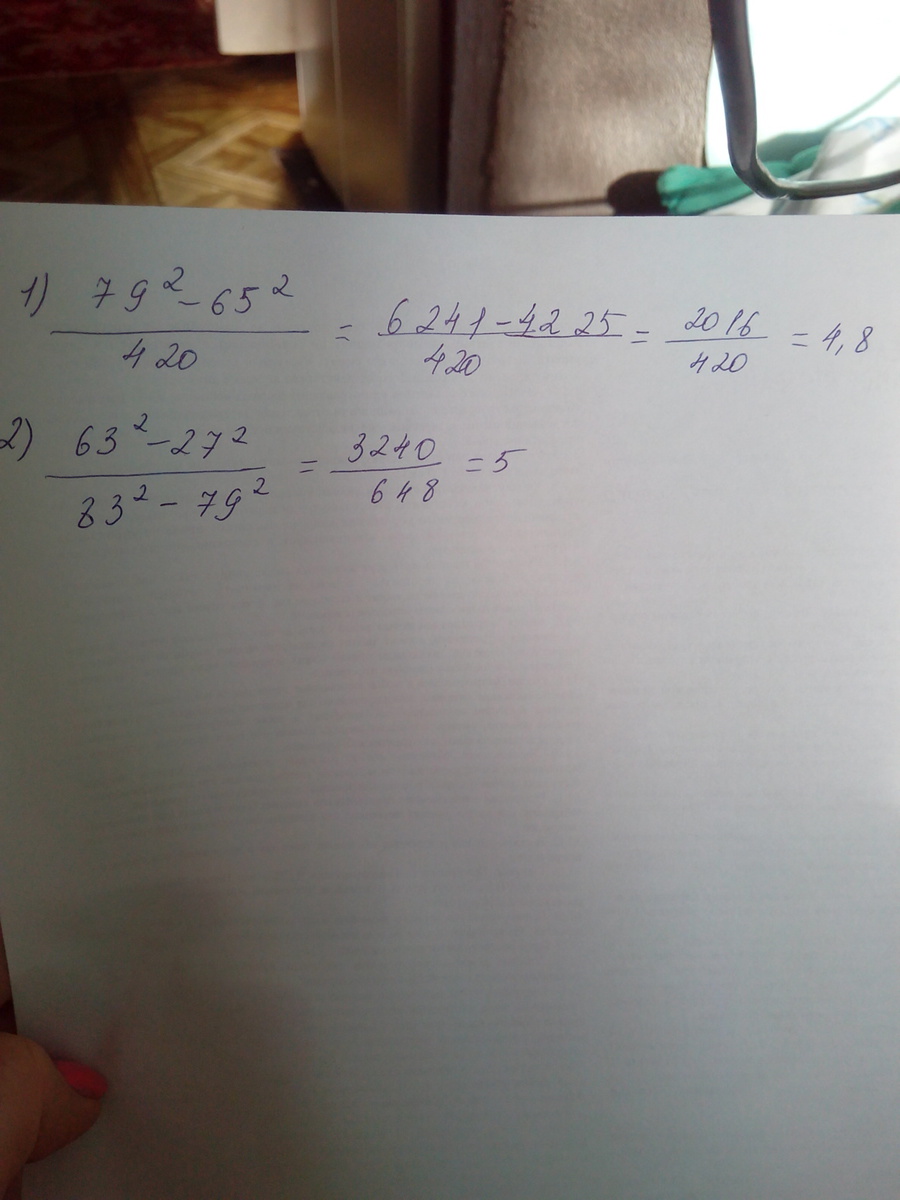 1) (79² - 65²)/420 = (6241 - 4225)/420 = 2016/420 = 4,8
2) (63² - 27²)/(83² - 79²) = 3240/648 = 5